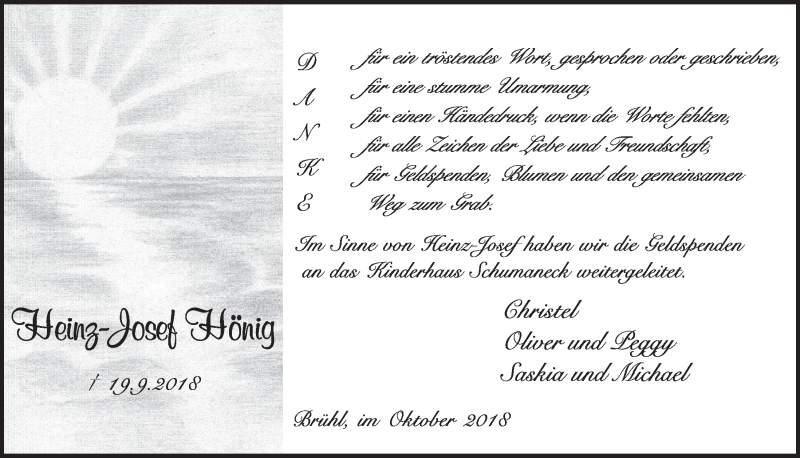 Heinz-Josef Hönig
† 19.9.2018
D für ein tröstendes Wort, gesprochen oder geschrieben,
A für eine stumme Umarmung,
für einen Händedruck, wenn die Worte fehlten,
N für alle Zeichen der Liebe und Freundschaft,
K für Geldspenden, Blumen und den gemeinsamen
E Weg zum Grab.
Im Sinne von Heinz-Josef haben wir die Geldspenden
an das Kinderhaus Schumaneck weitergeleitet.
Christel
Oliver und Peggy
Saskia und Michael
Brühl, im Oktober 2018